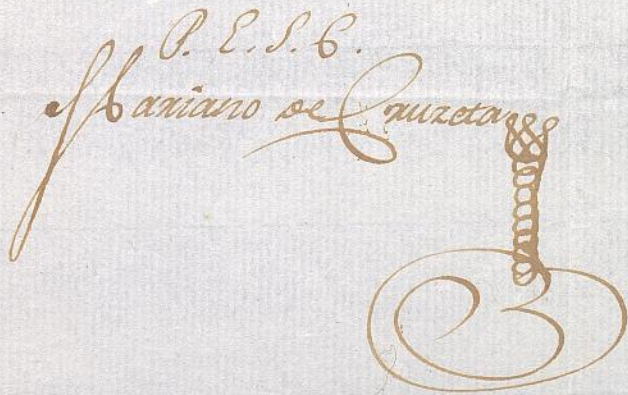 P. E. S. E.
Mariano de Cruzeta